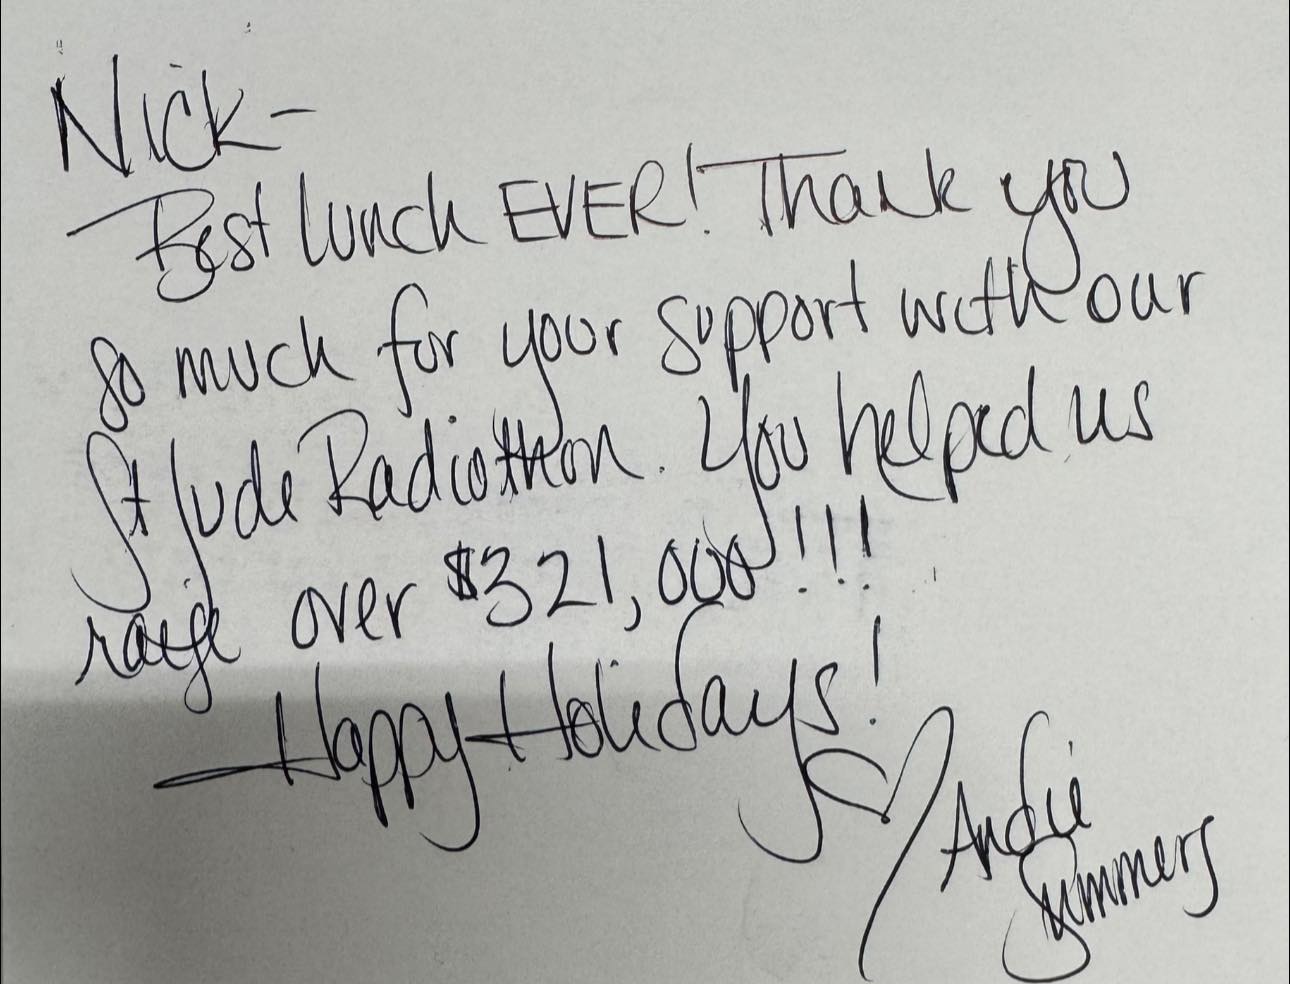 Nick-
Best lunch EVER! Thank you
so much for your support with our
St Jude Radiothon. You helped us
raise over $321,000!!!
Happy Holidays!
Andie
Summers